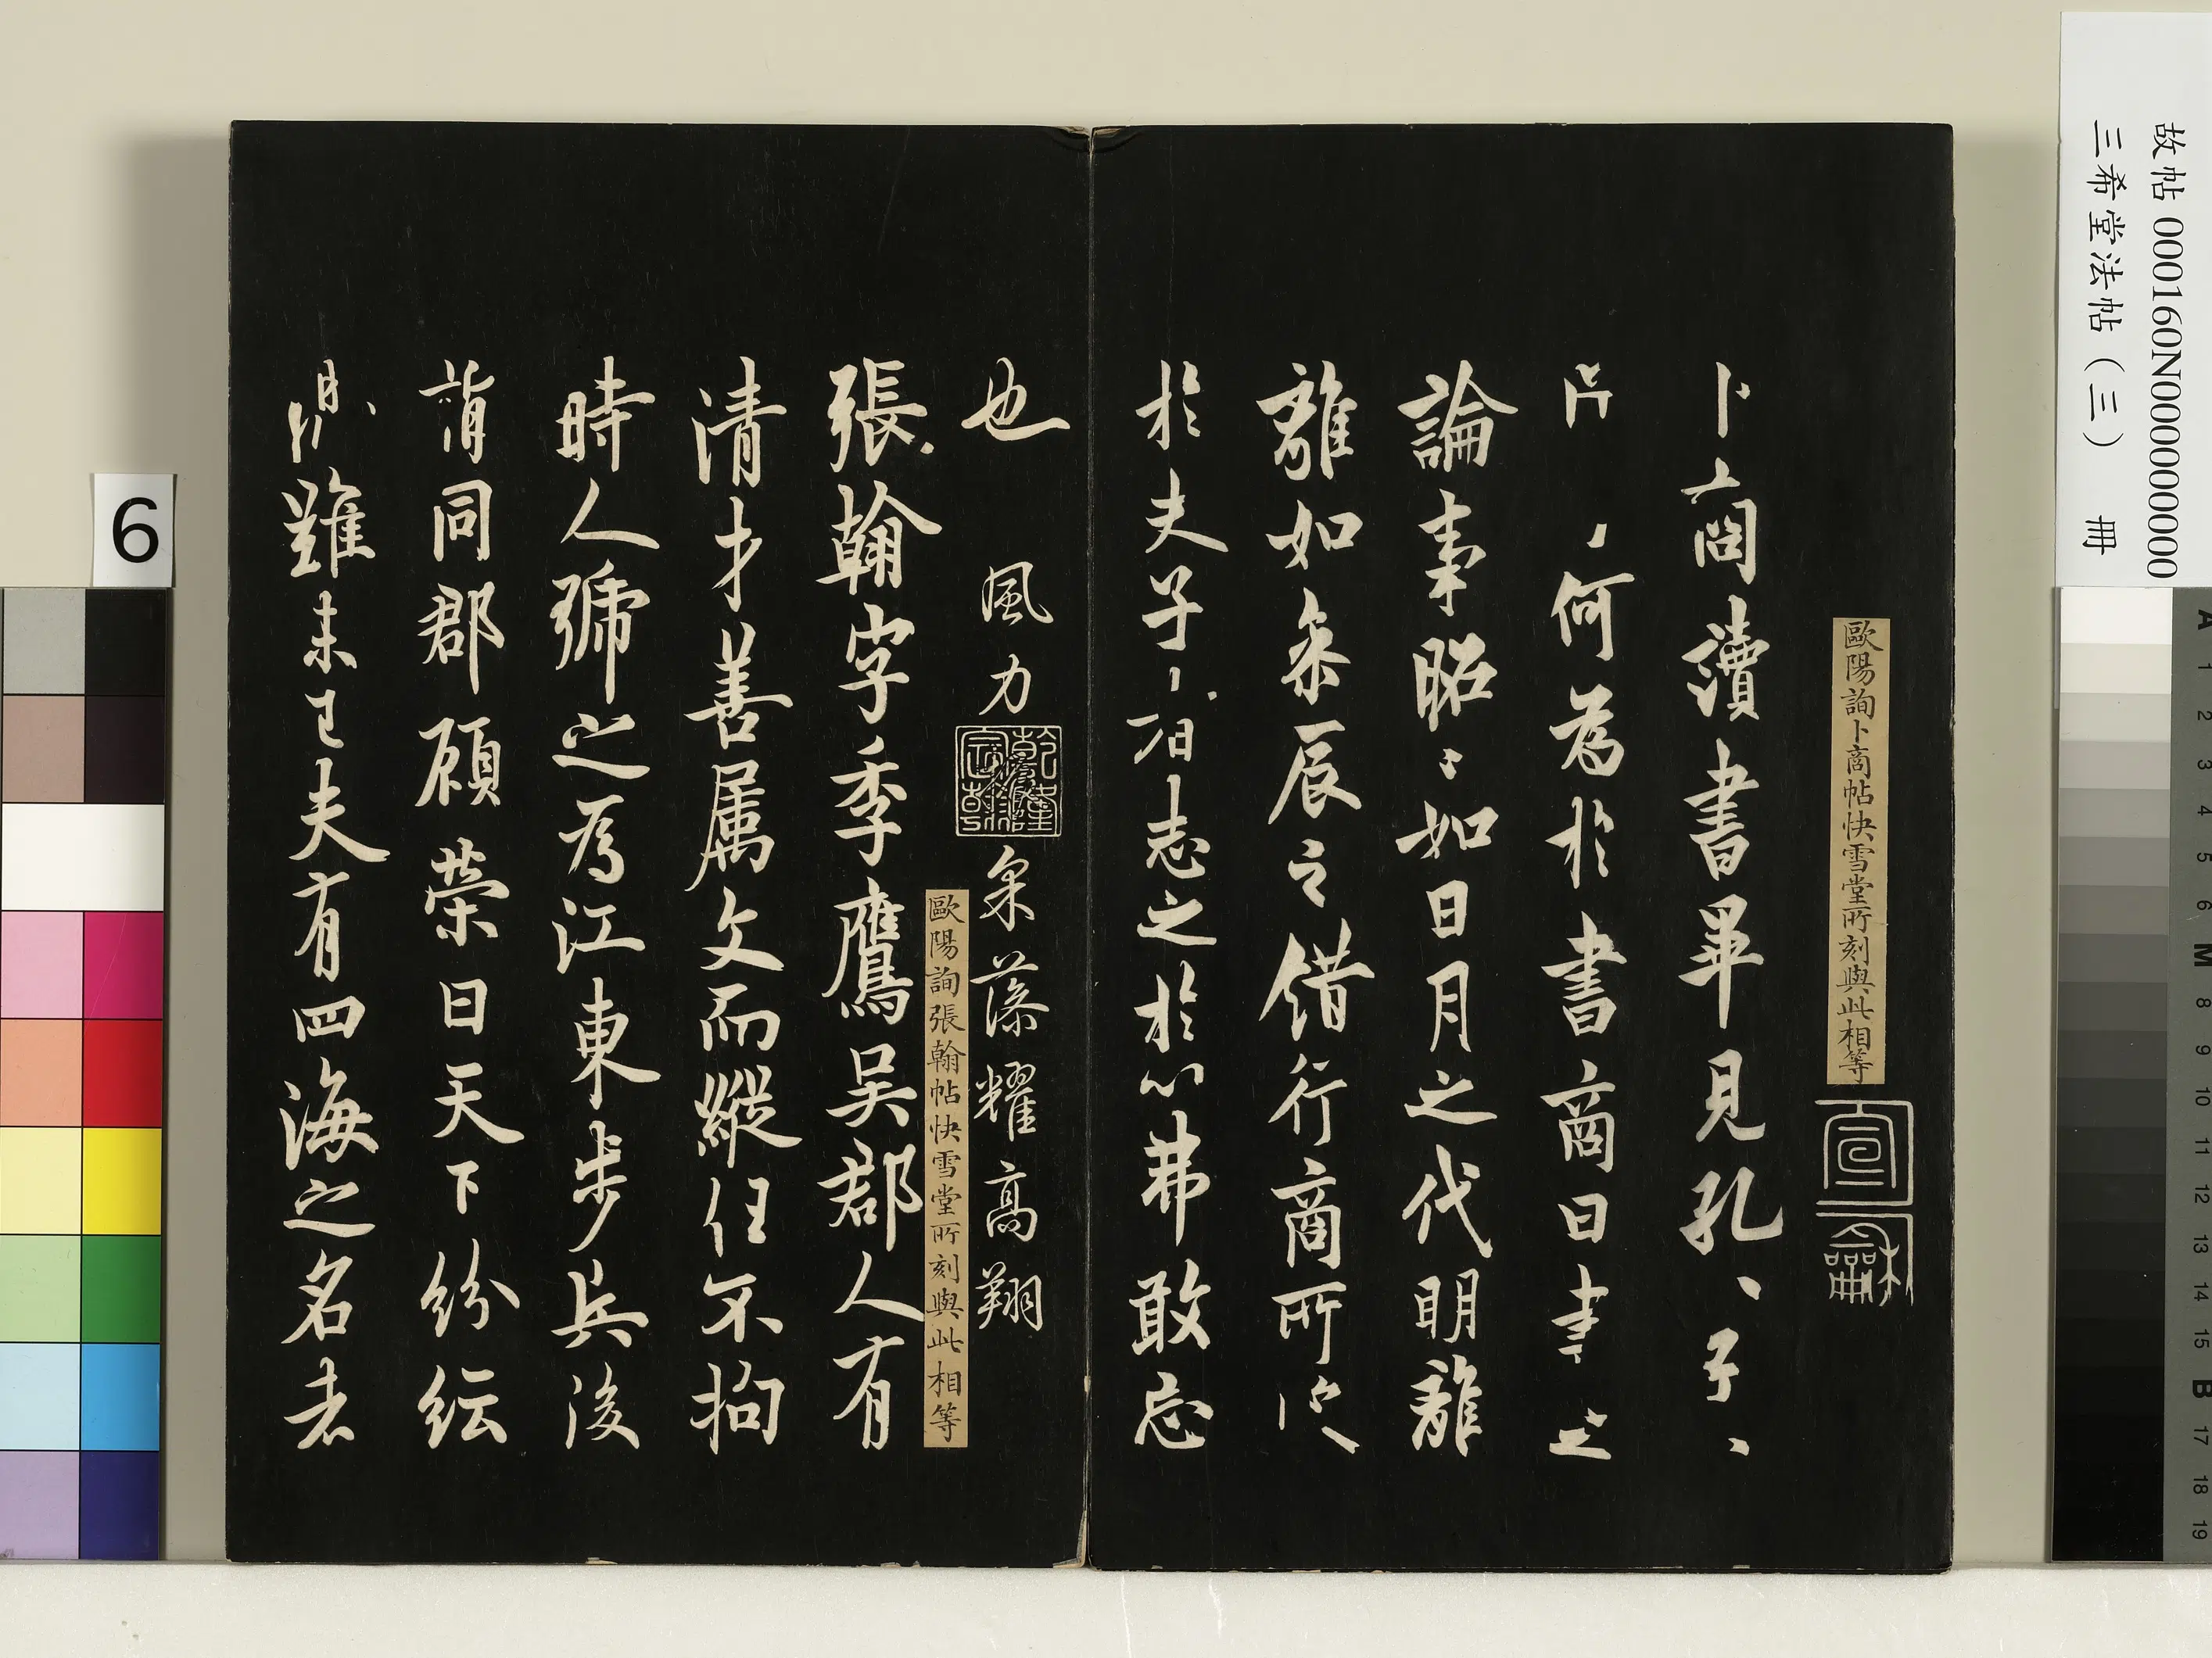 故帖000160N000000000
三希堂法帖（三） 冊
歐陽詢卜商帖快雪堂所刻與此相等
宣和
卜商讀書畢見孔、子、
何為於書商曰書之
論事昭〻如日月之代明離
離如參辰之錯行商所
於夫子志之於心弗敢忘
也
風力
乾隆宸翰
采藻耀高翔
歐陽詢張翰帖快雪堂所刻與此相等
張翰字季鷹吳郡人有
清才善屬文而縱任不拘
時人號之為江東步兵後
同郡顧榮曰天下紛紜
難未已夫有四海之名者
6
A 1 2 3 4 5 6 M 8 9 10 11 12 13 14 15 B 17 18 19